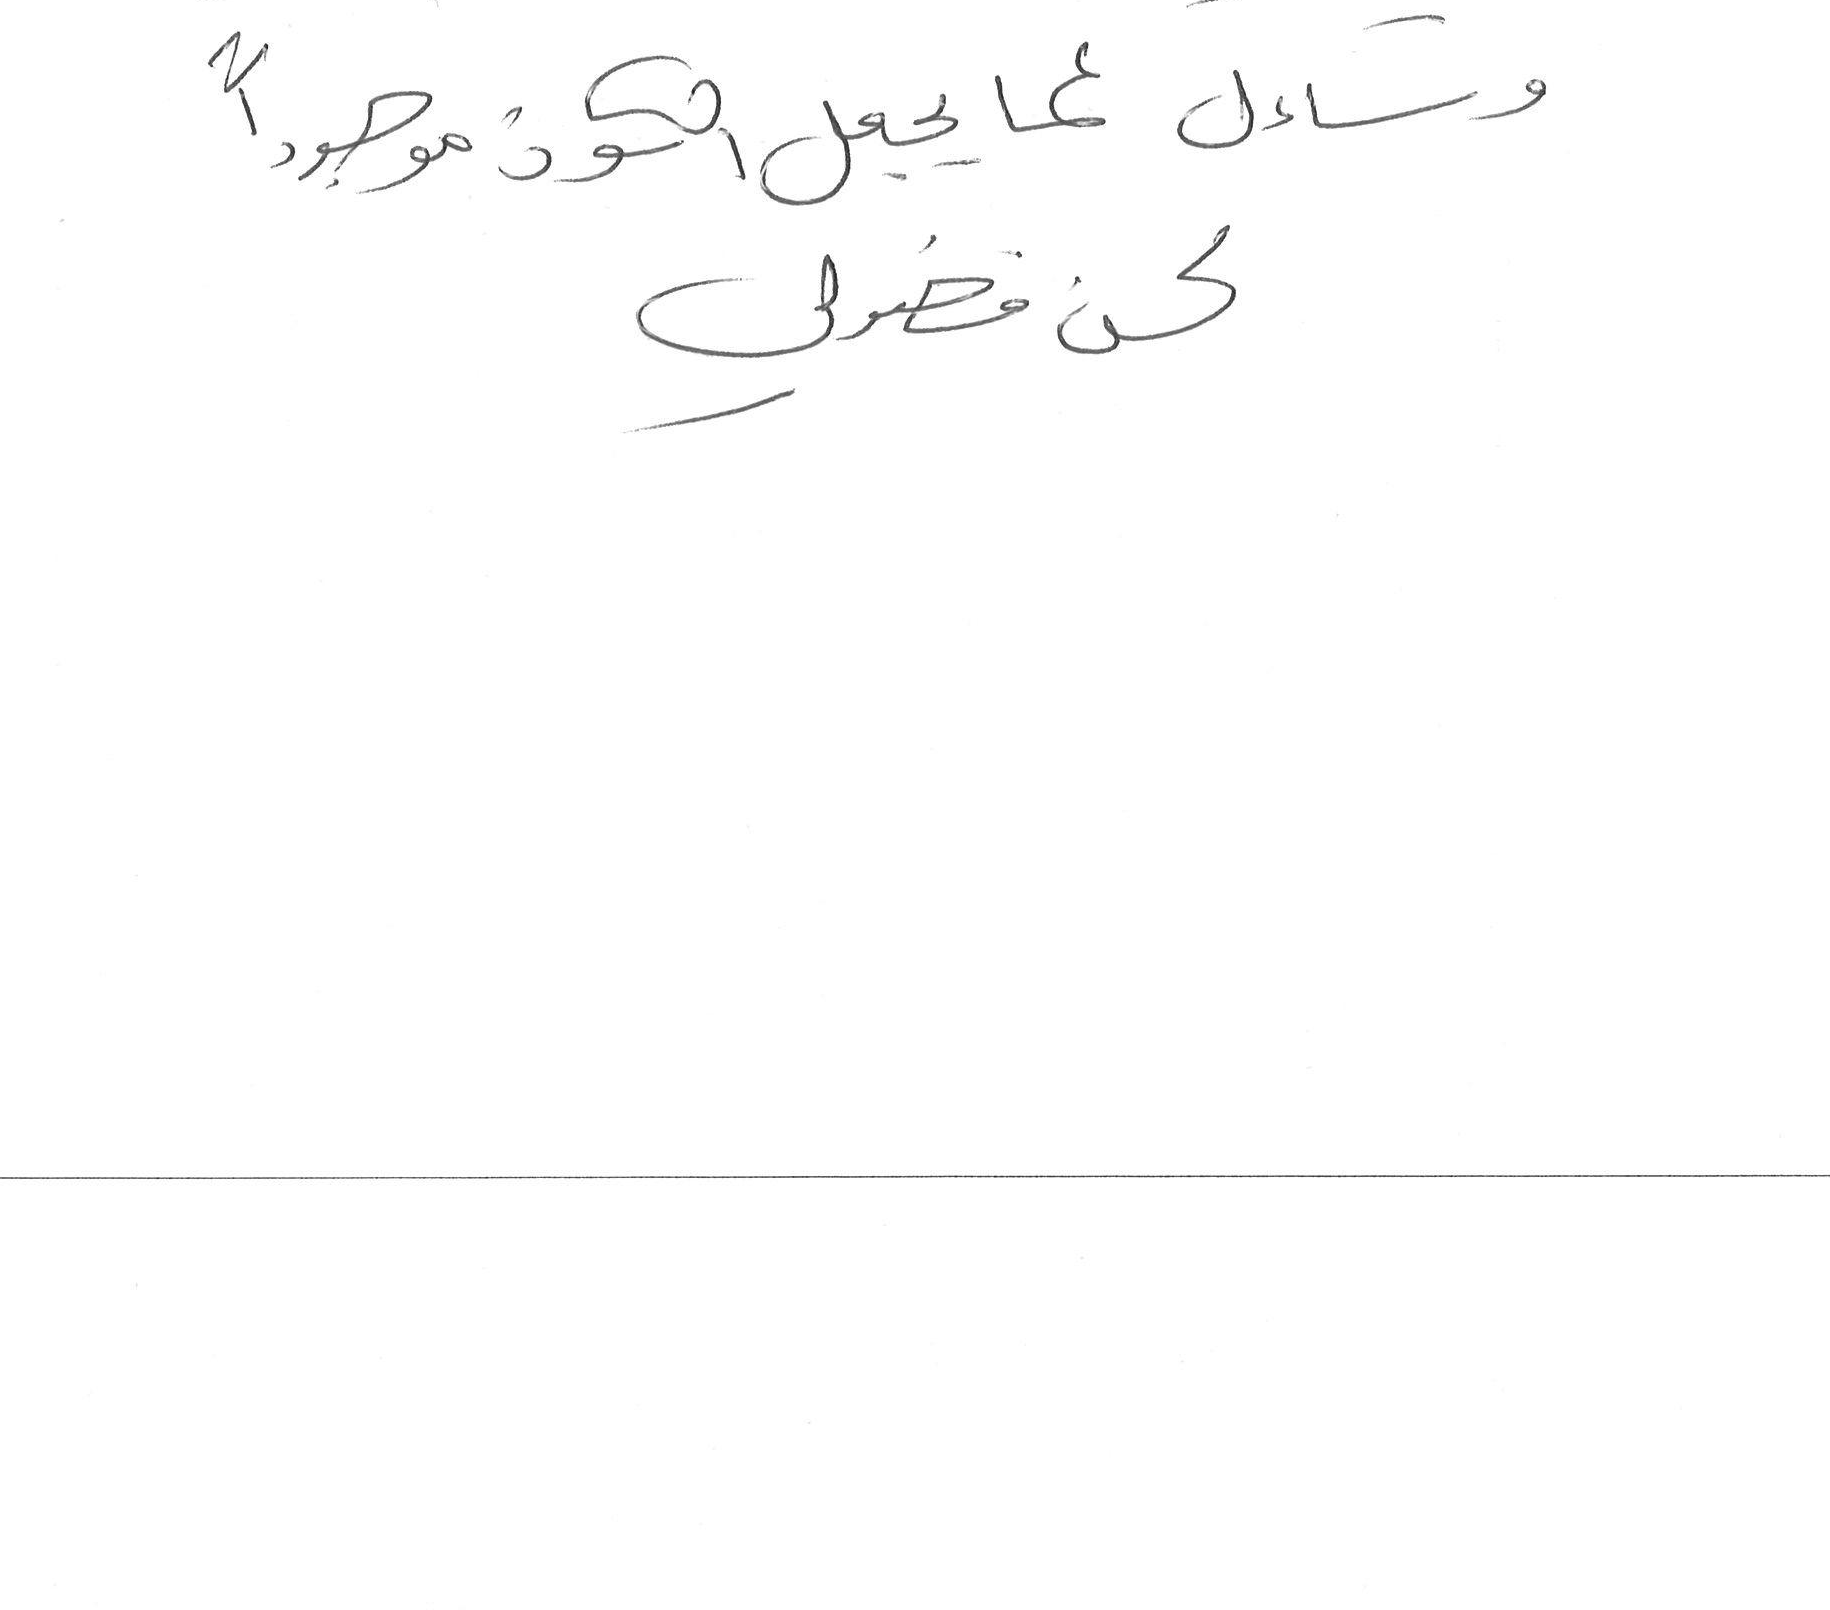 وتساءل عما يجعل الكون موجوداً
كن فضولي